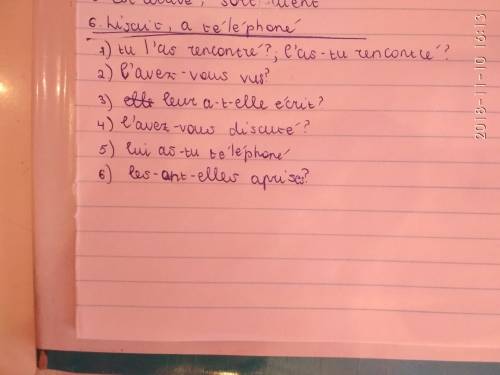 6. lisait, a téléphoné
1) tu l'as rencontré?; l'as-tu rencontré?
2) l'avez-vous vus?
3) leur a-t-elle écrit?
4) l'avez-vous discuté?
5) lui as-tu téléphoné
6) les-ont-elles aprises?
2018-11-10 16:13